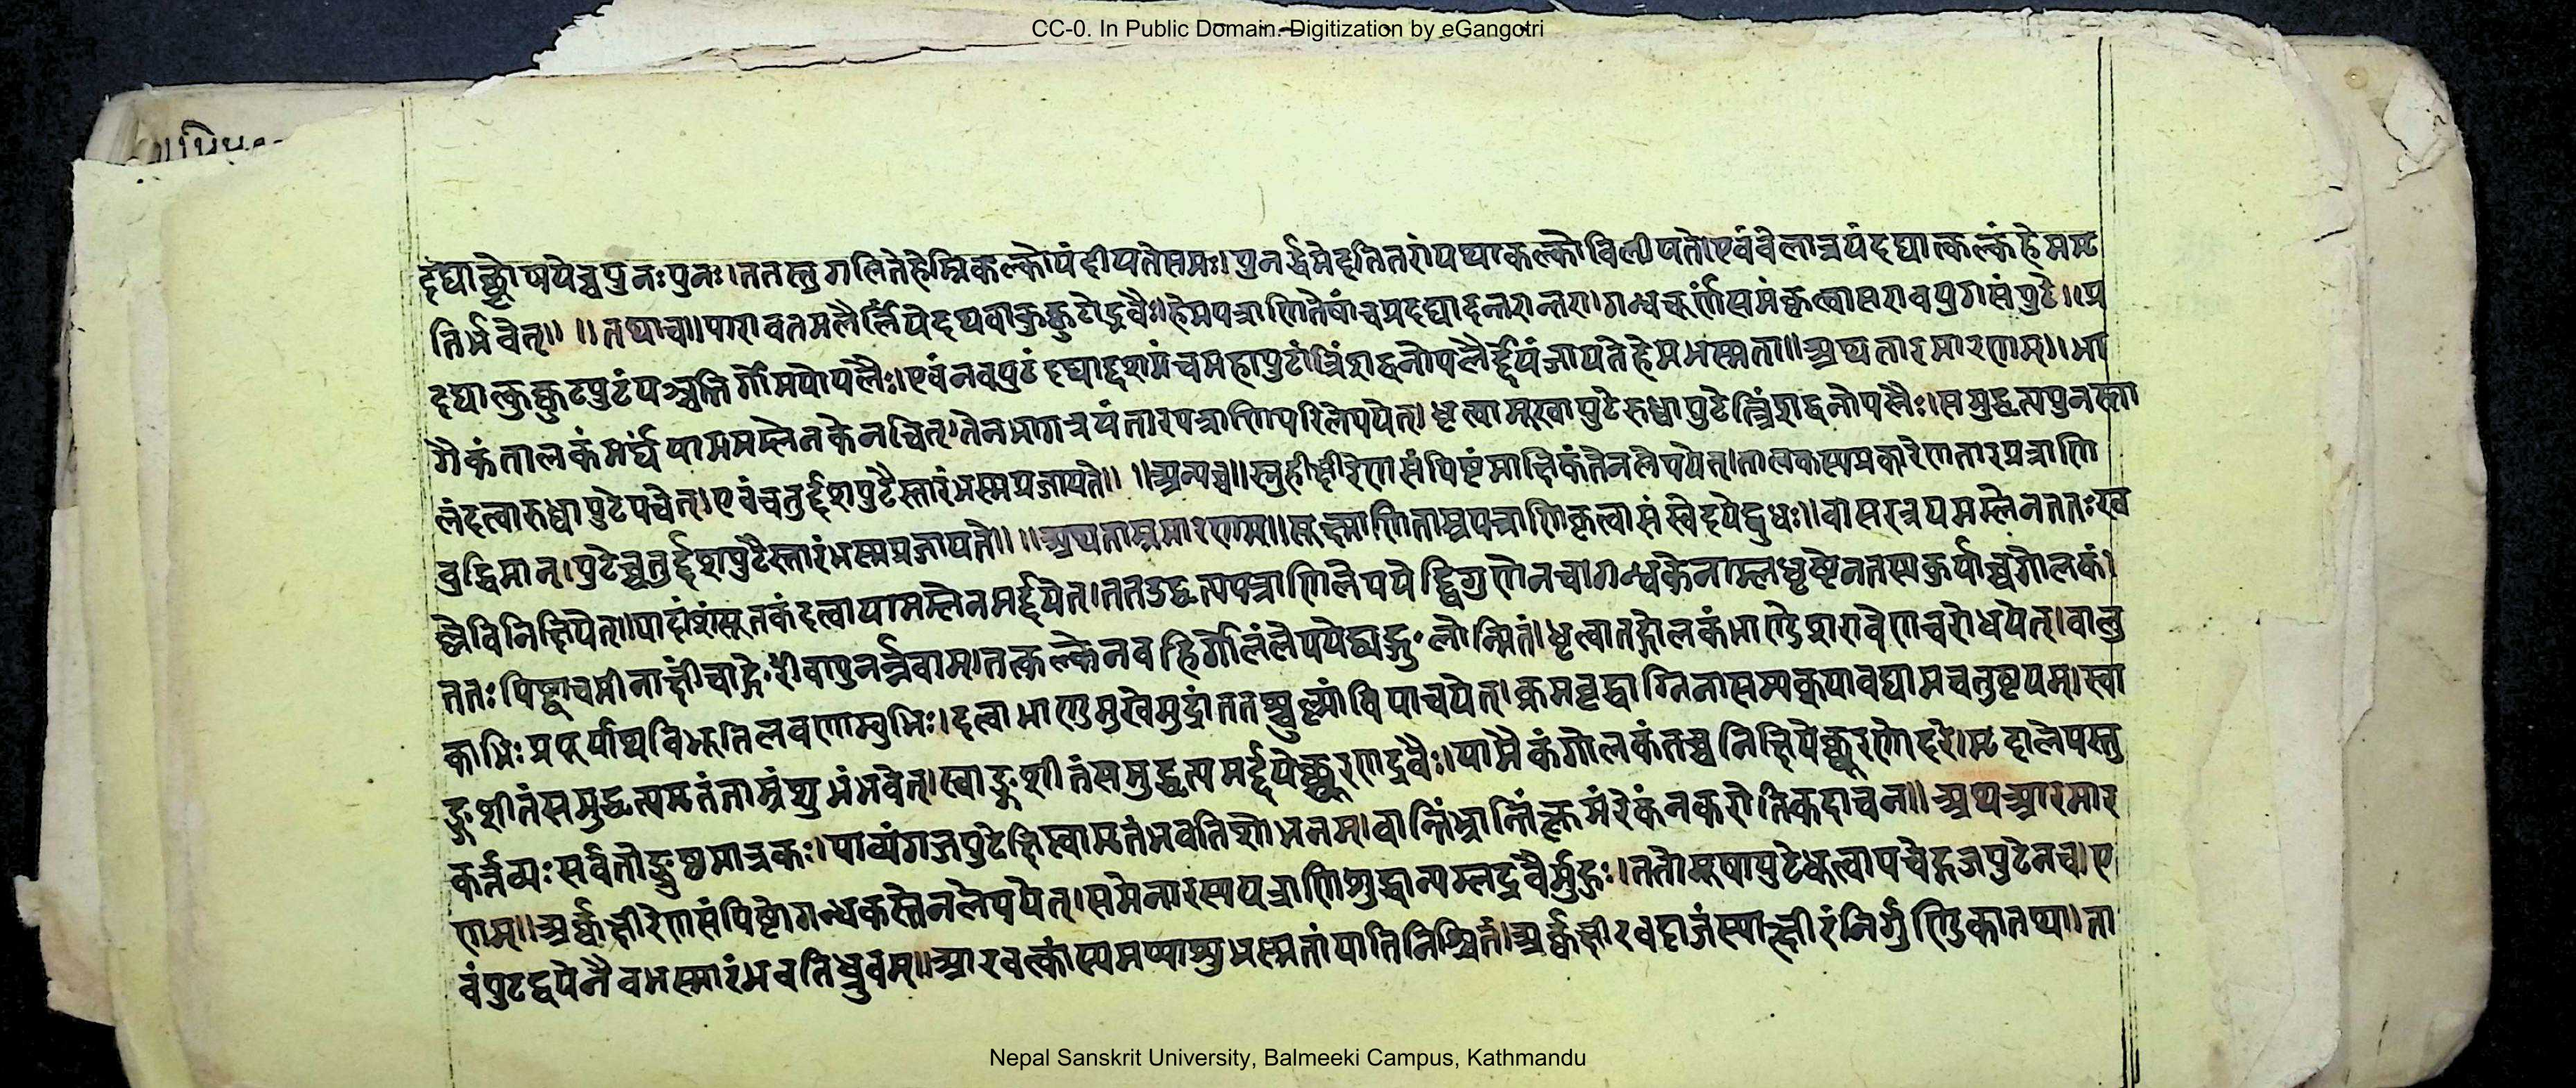 CC-0. In Public Domain. Digitization by eGangotri
दद्याच्छोषयेच्चपुनःपुनः।ततस्तुगलितेहेम्निकल्कोयंदीयतेसमः।पुनर्द्धमेदतितरांयथाकल्कोविलीयते।एवंवेलात्रयंदद्यात्कल्कंहेममृ
तिर्भवेत्॥ ॥तथाच॥पारावतमलैर्लिंपेदथवाकुक्कुटोद्भवैः।हेमपत्राणितेषांचप्रदद्यादन्तरान्तरा।गन्धचूर्णंसमंकृत्वासरावपुगसंपुटे॥प्र
दद्यात्कुक्कुटपुटंपञ्चभिर्गोमयोपलैः।एवंनवपुटंदद्याद्दशमंचमहापुटं।त्रिंशद्वनोपलैर्द्देयंजायतेहेमभस्मता॥अथतारमारणम्॥भा
गैकंतालकंमर्घयामममम्लेनकेनचित्।तेनभागत्रयंतारपत्राणिपरिलेपयेत्।धृत्वामूखापुटेरुध्वापुटेत्त्रिंशद्वनोपलैः।समुद्धृत्यपुनस्ता
लंदत्वारुध्वापुटेपचेत्।एवंचतुर्द्दशपुटैस्तारंभस्मप्रजायते॥ ॥अन्यच्च॥स्नुहीक्षीरेणसंपिष्टंमाक्षिकंतेनलेपयेत्।तालकस्यप्रकारेणतारपत्राणि
बुद्धिमान्।पुटेच्चतुर्द्दशपुटैस्तारंभस्मप्रजायते॥ ॥अथताम्रमारणम्॥सूक्ष्माणिताम्रपत्राणिकृत्वासंस्वेदयेद्बुधः॥वासरत्रयमम्लेनततःख
ल्लेविनिक्षिपेत्॥पादांशंसूतकंदत्वायाममम्लेनमर्द्दयेत्।ततउद्धृत्यपत्राणिलेपयेद्द्विगुणेनच।गन्धकेनाम्लघृष्टेनतस्यकुर्याच्चगोलकं।
ततःपिष्ट्वाचमीनाक्षींचाङ्गेरींवापुनर्न्नवाम्।तत्कल्केनवहिर्गोलंलेपयेद्द्यङ्गुलोन्मितं।धृत्वातद्गोलकंभाण्डेशरावेणचरोधयेत्।वालु
काभिःप्रपूर्याथविभूतिलवणाम्बुभिः।दत्वाभाण्डमुखेमुद्रांततश्चुल्यांविपाचयेत्।क्रमवृद्धाग्निनासम्यक्यावद्यामचतुष्टयम्।स्वा
ङ्गशीतंसमुद्धृत्यमृतंताम्रंशुभंभवेत्।स्वाङ्गशीतंसमुद्धृत्यमर्द्दयेच्छूरणद्रवैः।यामैकंगोलकंतच्चनिक्षिपेच्छूरणोदरे।मृदालेपस्तु
कर्त्तव्यःसर्वतोङ्गुष्ठमात्रकः।पाच्यंगजपुटेक्षिप्त्वामृतंभवतिशोभनम्।वान्तिंभ्रान्तिंक्लमंरेकंनकरोतिकदाचन॥ अथआरमार
णम्॥अर्कक्षीरेणसंपिष्टोगन्धकस्तेनलेपयेत्।समेनारस्यपत्राणिशुद्धान्यम्लद्रवैर्मुहुः।ततोमूषापुटेधृत्वापचेद्गजपुटेनच।ए
वंपुटद्वयेनैवभस्मारंभवतिध्रुवम्॥आरवत्कांस्यमप्याशुभस्मतांयातिनिश्चितं।अर्कक्षीरवदाजंस्यात्क्षीरंनिर्गुण्डिकातथा।ता
Nepal Sanskrit University, Balmeeki Campus, Kathmandu